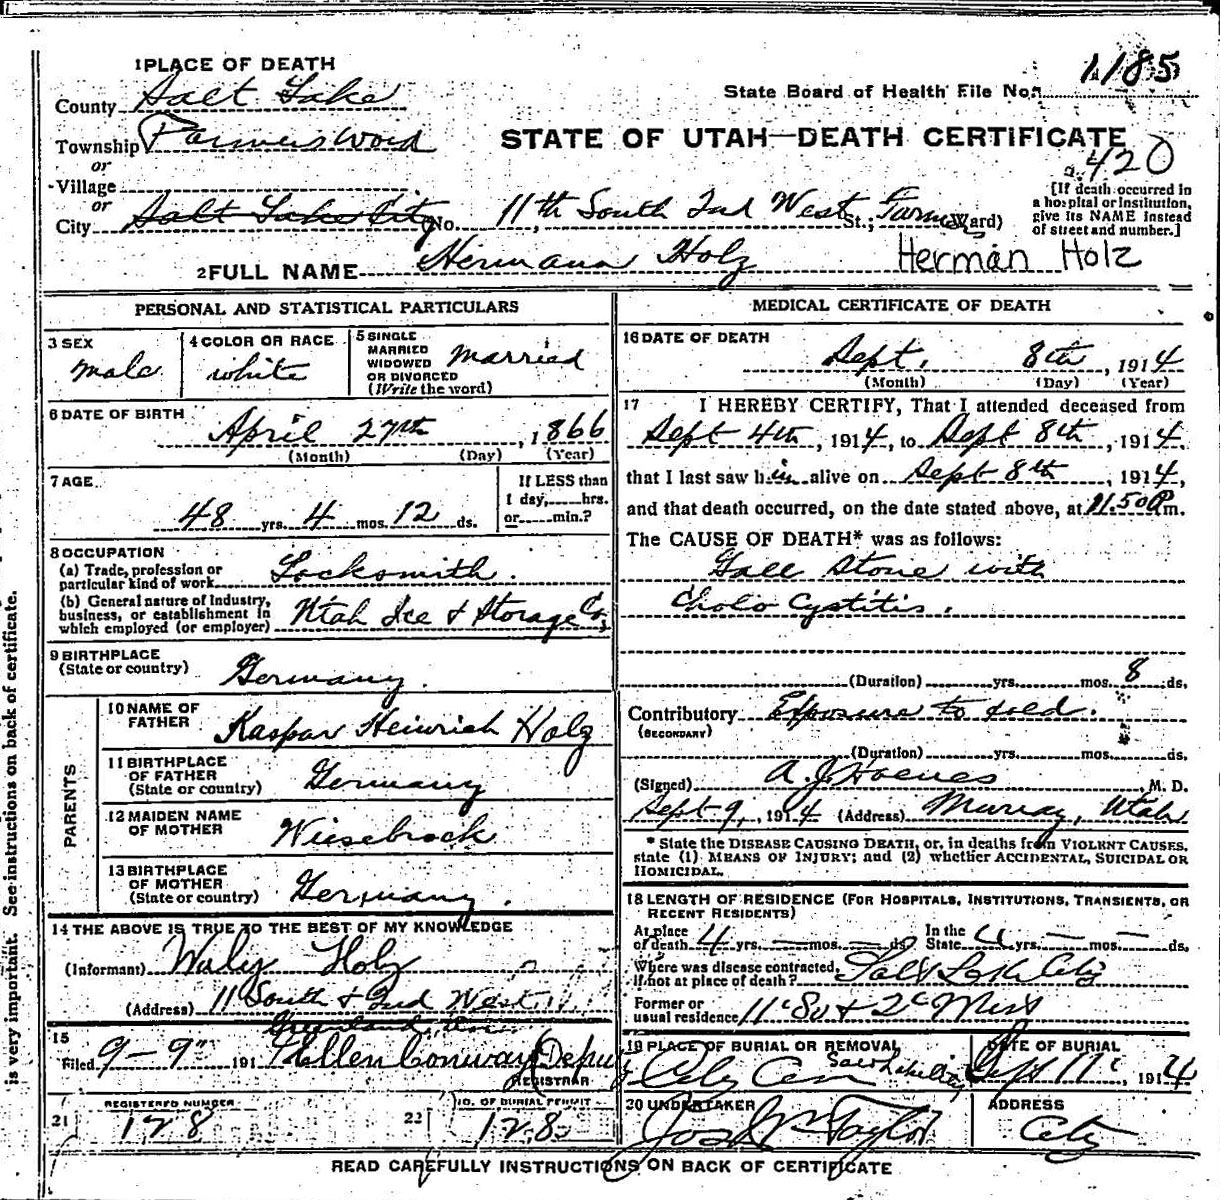 1 PLACE OF DEATH
County Salt Lake
State Board of Health File No. 1185
Township Farmers Ward
STATE OF UTAH—DEATH CERTIFICATE
420
or
Village
or
City Salt Lake City No. 11th South 2nd West St.; Farmers Ward)
[If death occurred in a hospital or institution, give its NAME instead of street and number.]
2 FULL NAME Hermann Holz Herman Holz
PERSONAL AND STATISTICAL PARTICULARS
3 SEX male
4 COLOR OR RACE white
5 SINGLE MARRIED WIDOWED OR DIVORCED (Write the word) married
6 DATE OF BIRTH
April 27th, 1866
(Month) (Day) (Year)
7 AGE
48 yrs. 4 mos. 12 ds.
If LESS than 1 day, hrs. or min.?
8 OCCUPATION
(a) Trade, profession or particular kind of work Locksmith.
(b) General nature of industry, business, or establishment in which employed (or employer) Utah Ice & Storage Co,
9 BIRTHPLACE
(State or country) Germany.
PARENTS
10 NAME OF FATHER Kaspar Heinrich Holz
11 BIRTHPLACE OF FATHER (State or country) Germany
12 MAIDEN NAME OF MOTHER Wiesebrock
13 BIRTHPLACE OF MOTHER (State or country) Germany.
14 THE ABOVE IS TRUE TO THE BEST OF MY KNOWLEDGE
(Informant) Holz
(Address) 11 South & 2nd West
15
Filed 9-9" 191 Ellen Conway Deputy
REGISTRAR
REGISTERED NUMBER
21 128
NO. OF BURIAL PERMIT
22 128
MEDICAL CERTIFICATE OF DEATH
16 DATE OF DEATH
Sept. 8th, 1914
(Month) (Day) (Year)
17 I HEREBY CERTIFY, That I attended deceased from
Sept 4th, 1914, to Sept 8th, 1914.
that I last saw him alive on Sept 8th, 1914,
and that death occurred, on the date stated above, at 11.50 P.m.
The CAUSE OF DEATH* was as follows:
Gall Stone with
Cholo Cystitis.
(Duration) yrs. mos. 8 ds.
Contributory Exposure to cold.
(SECONDARY)
(Duration) yrs. mos. ds.
(Signed) A. J. Hoenes M. D.
Sept 9, 1914 (Address) Murray, Utah
* State the DISEASE CAUSING DEATH, or, in deaths from VIOLENT CAUSES,
state (1) MEANS OF INJURY; and (2) whether ACCIDENTAL, SUICIDAL OR
HOMICIDAL.
18 LENGTH OF RESIDENCE (FOR HOSPITALS, INSTITUTIONS, TRANSIENTS, OR
RECENT RESIDENTS)
At place of death 4 yrs. — mos. — ds. In the State 4 yrs. — mos. — ds.
Where was disease contracted, if not at place of death? Salt Lake City
Former or usual residence 11' So & 2" West
19 PLACE OF BURIAL OR REMOVAL
City Cem Salt Lake City
DATE OF BURIAL
Sept 11", 1914
20 UNDERTAKER
Jos Wm Taylor
ADDRESS
City
READ CAREFULLY INSTRUCTIONS ON BACK OF CERTIFICATE
is very important. See instructions on back of certificate.